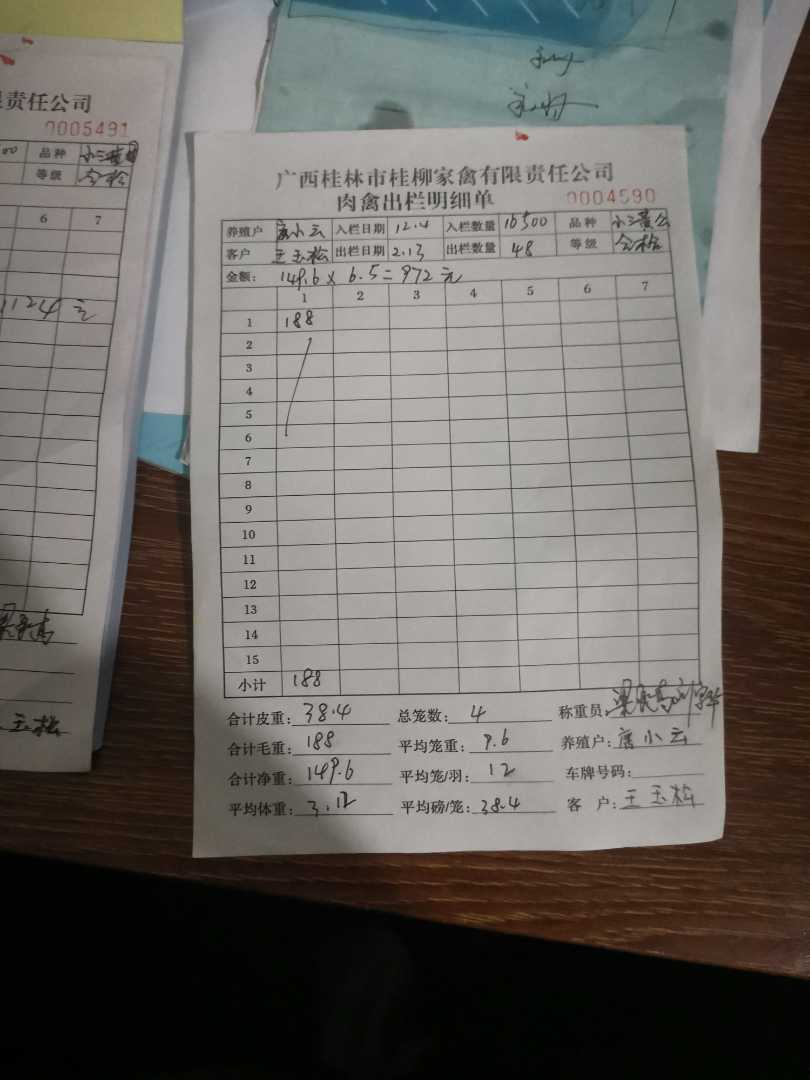 责任公司
0005491
00 品种
等级
6 7
1124元
王玉松
广西桂林市桂柳家禽有限责任公司
肉禽出栏明细单 0004590
养殖户 唐小云 入栏日期 12.4 入栏数量 16500 品种 小三黄公
客户 王玉松 出栏日期 2.13 出栏数量 48 等级 合格
金额: 149.6 × 6.5 = 972 元
1 2 3 4 5 6 7
1 188
2
3
4
5
6
7
8
9
10
11
12
13
14
15
小计 188
合计皮重: 38.4 总笼数: 4 称重员:
合计毛重: 188 平均笼重: 9.6 养殖户: 唐小云
合计净重: 149.6 平均笼/羽: 12 车牌号码:
平均体重: 3.12 平均磅/笼: 38.4 客户: 王玉松